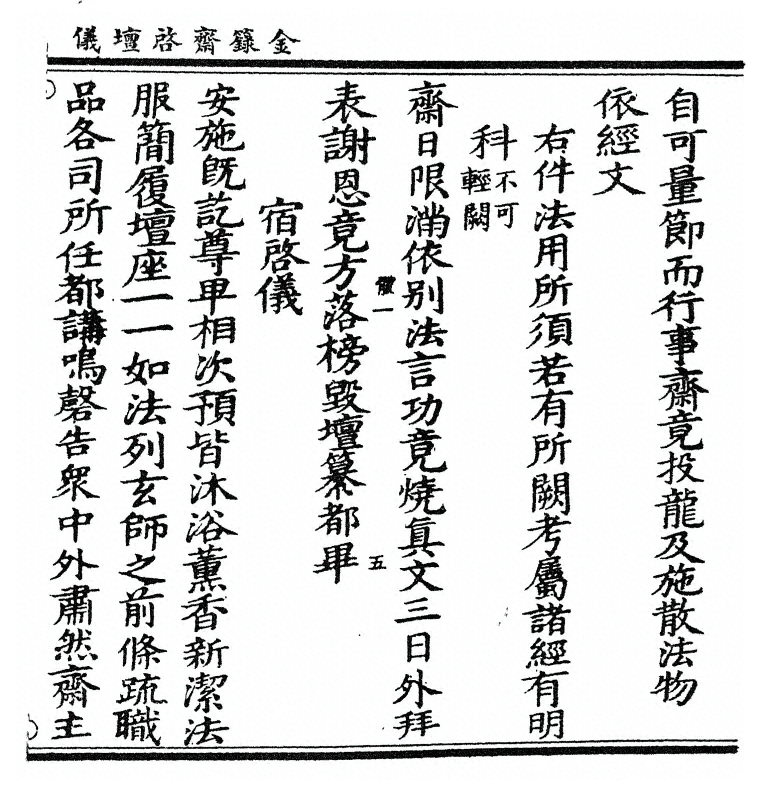 金籙齋啓壇儀
自可量節而行事齋竟投龍及施散法物
依經文
右件法用所須若有所闕考屬諸經有明
科不可輕闕
齋日限滿依别法言功竟燒眞文三日外拜
一 五
表謝恩竟方落榜毀壇纂都畢
宿啓儀
安施既訖尊卑相次預皆沐浴薰香新潔法
服簡履壇座一一如法列玄師之前條疏職
品各司所任都講鳴磬告衆中外肅然齋主